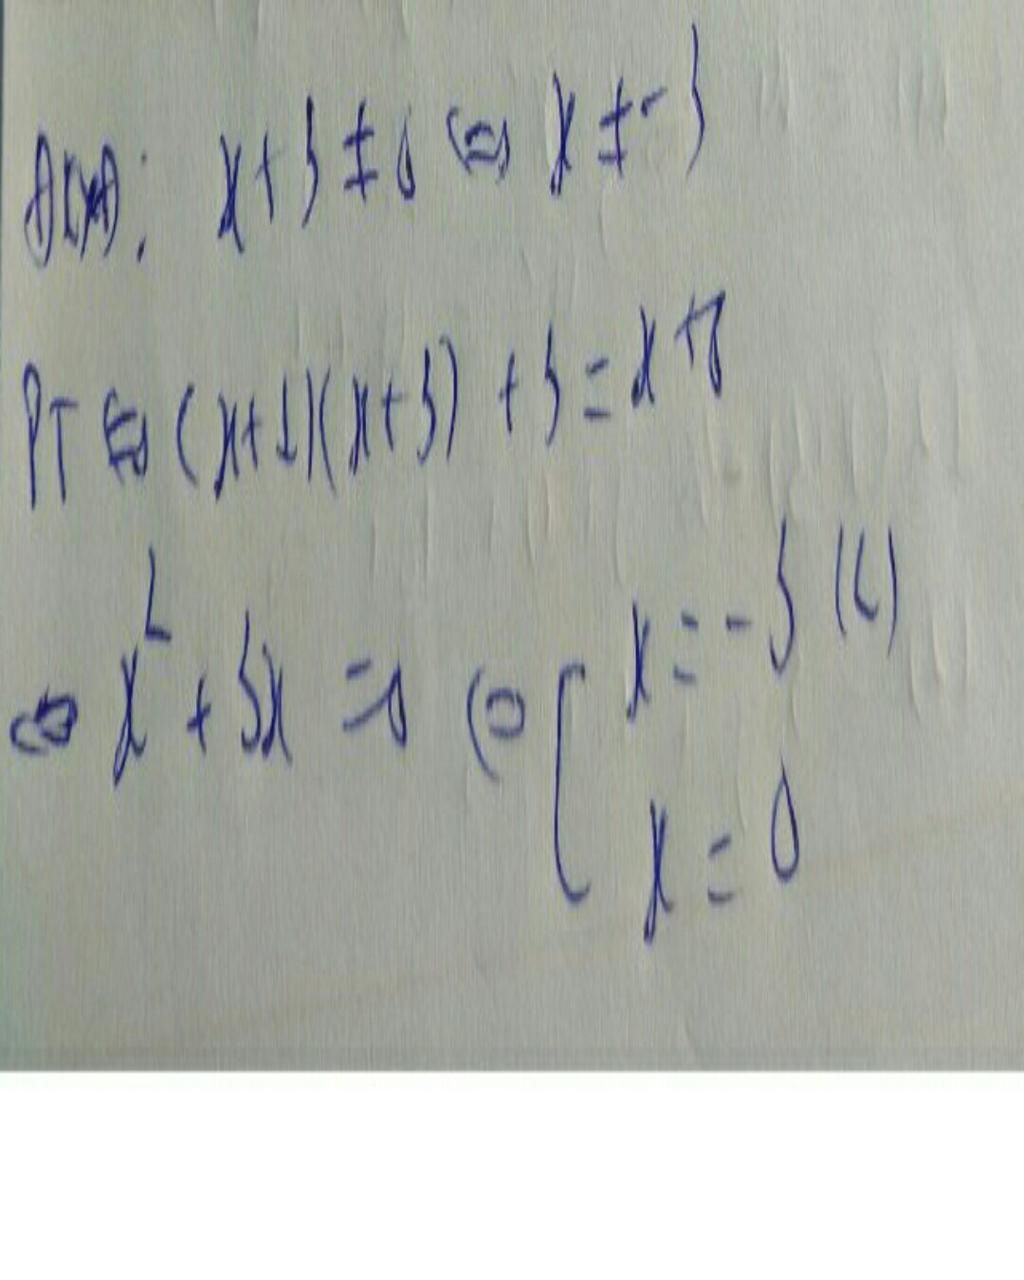 ĐKXĐ: x + 3 ≠ 0 ⇔ x ≠ -3
PT ⇔ (x+1)(x+3) + 3 = x + 6
⇔ x² + 3x = 0 ⇔ [ x = -3 (L)
x = 0